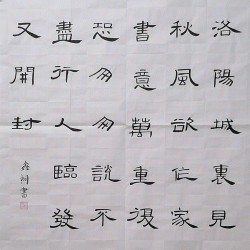 洛陽城裏見
秋風欲作家
書意萬重復
恐匆匆說不
盡行人臨發
又開封
書